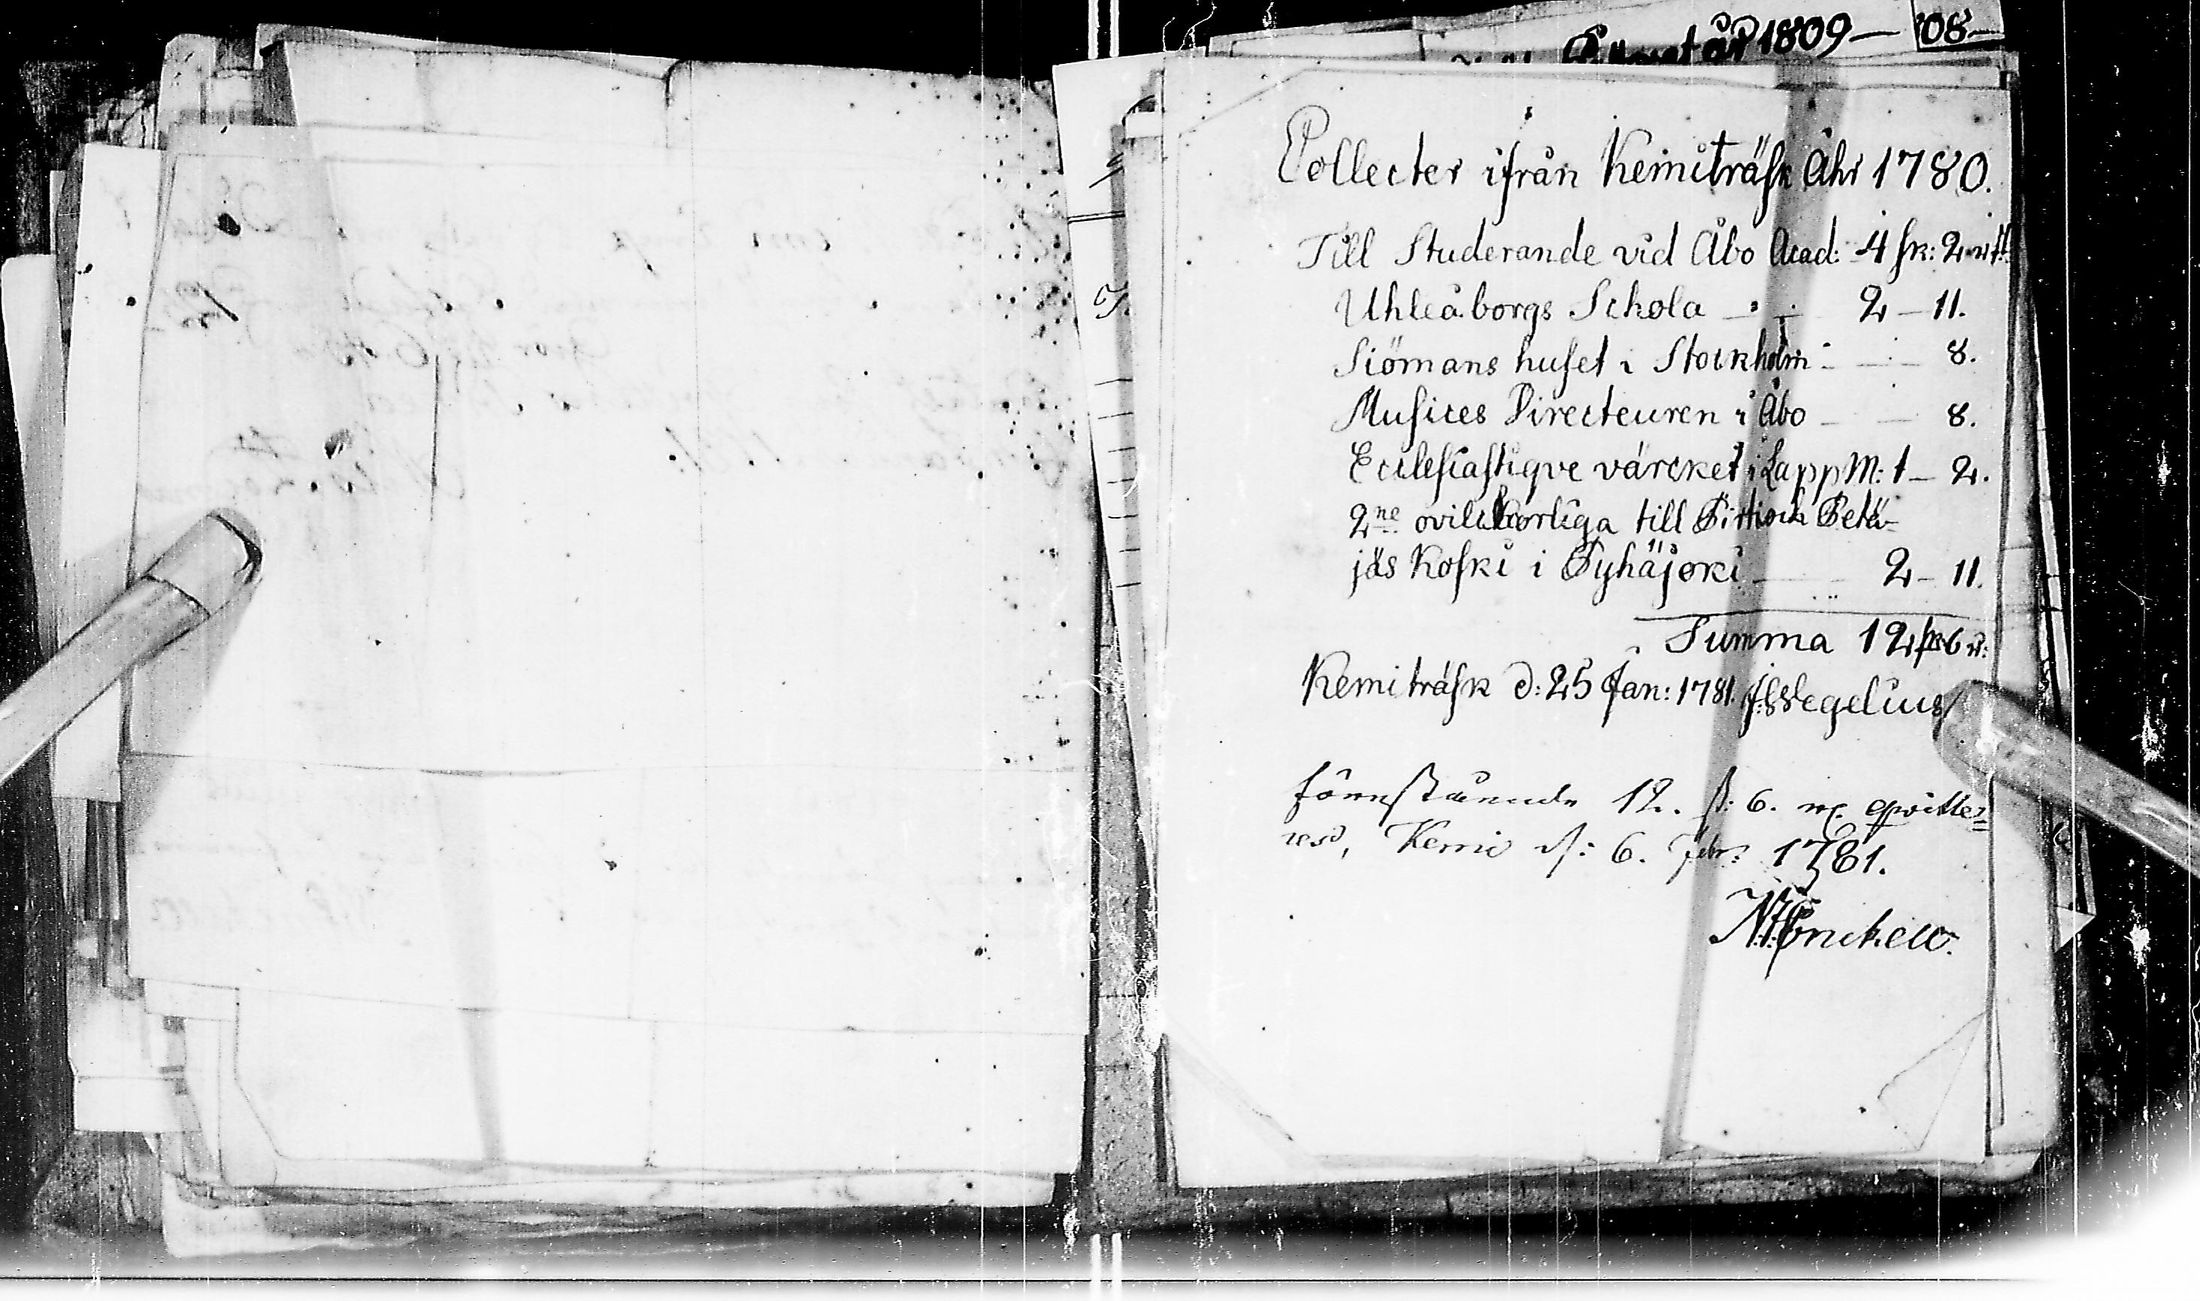 1809 — '08 —
Collecter ifrån Kemiträsk Åhr 1780.
Till Studerande vid Åbo Acad: 4 sk: 2 rst.
Uhleåborgs Schola — : — 2 — 11.
Siömans huset i Stockholm — — 8.
Musices Directeuren i Åbo — — 8.
Ecclesiastique värcket i Lapp M: 1 — 2.
2ne ovilkorliga till och Petä-
jäs Koski i Pyhäjoki — 2 — 11.
Summa 12 sk 6 r:
Kemiträsk d: 25 Jan: 1781.
förestående 12. s: 6. qvitte=
res, Kemi d: 6. Febr: 1781.